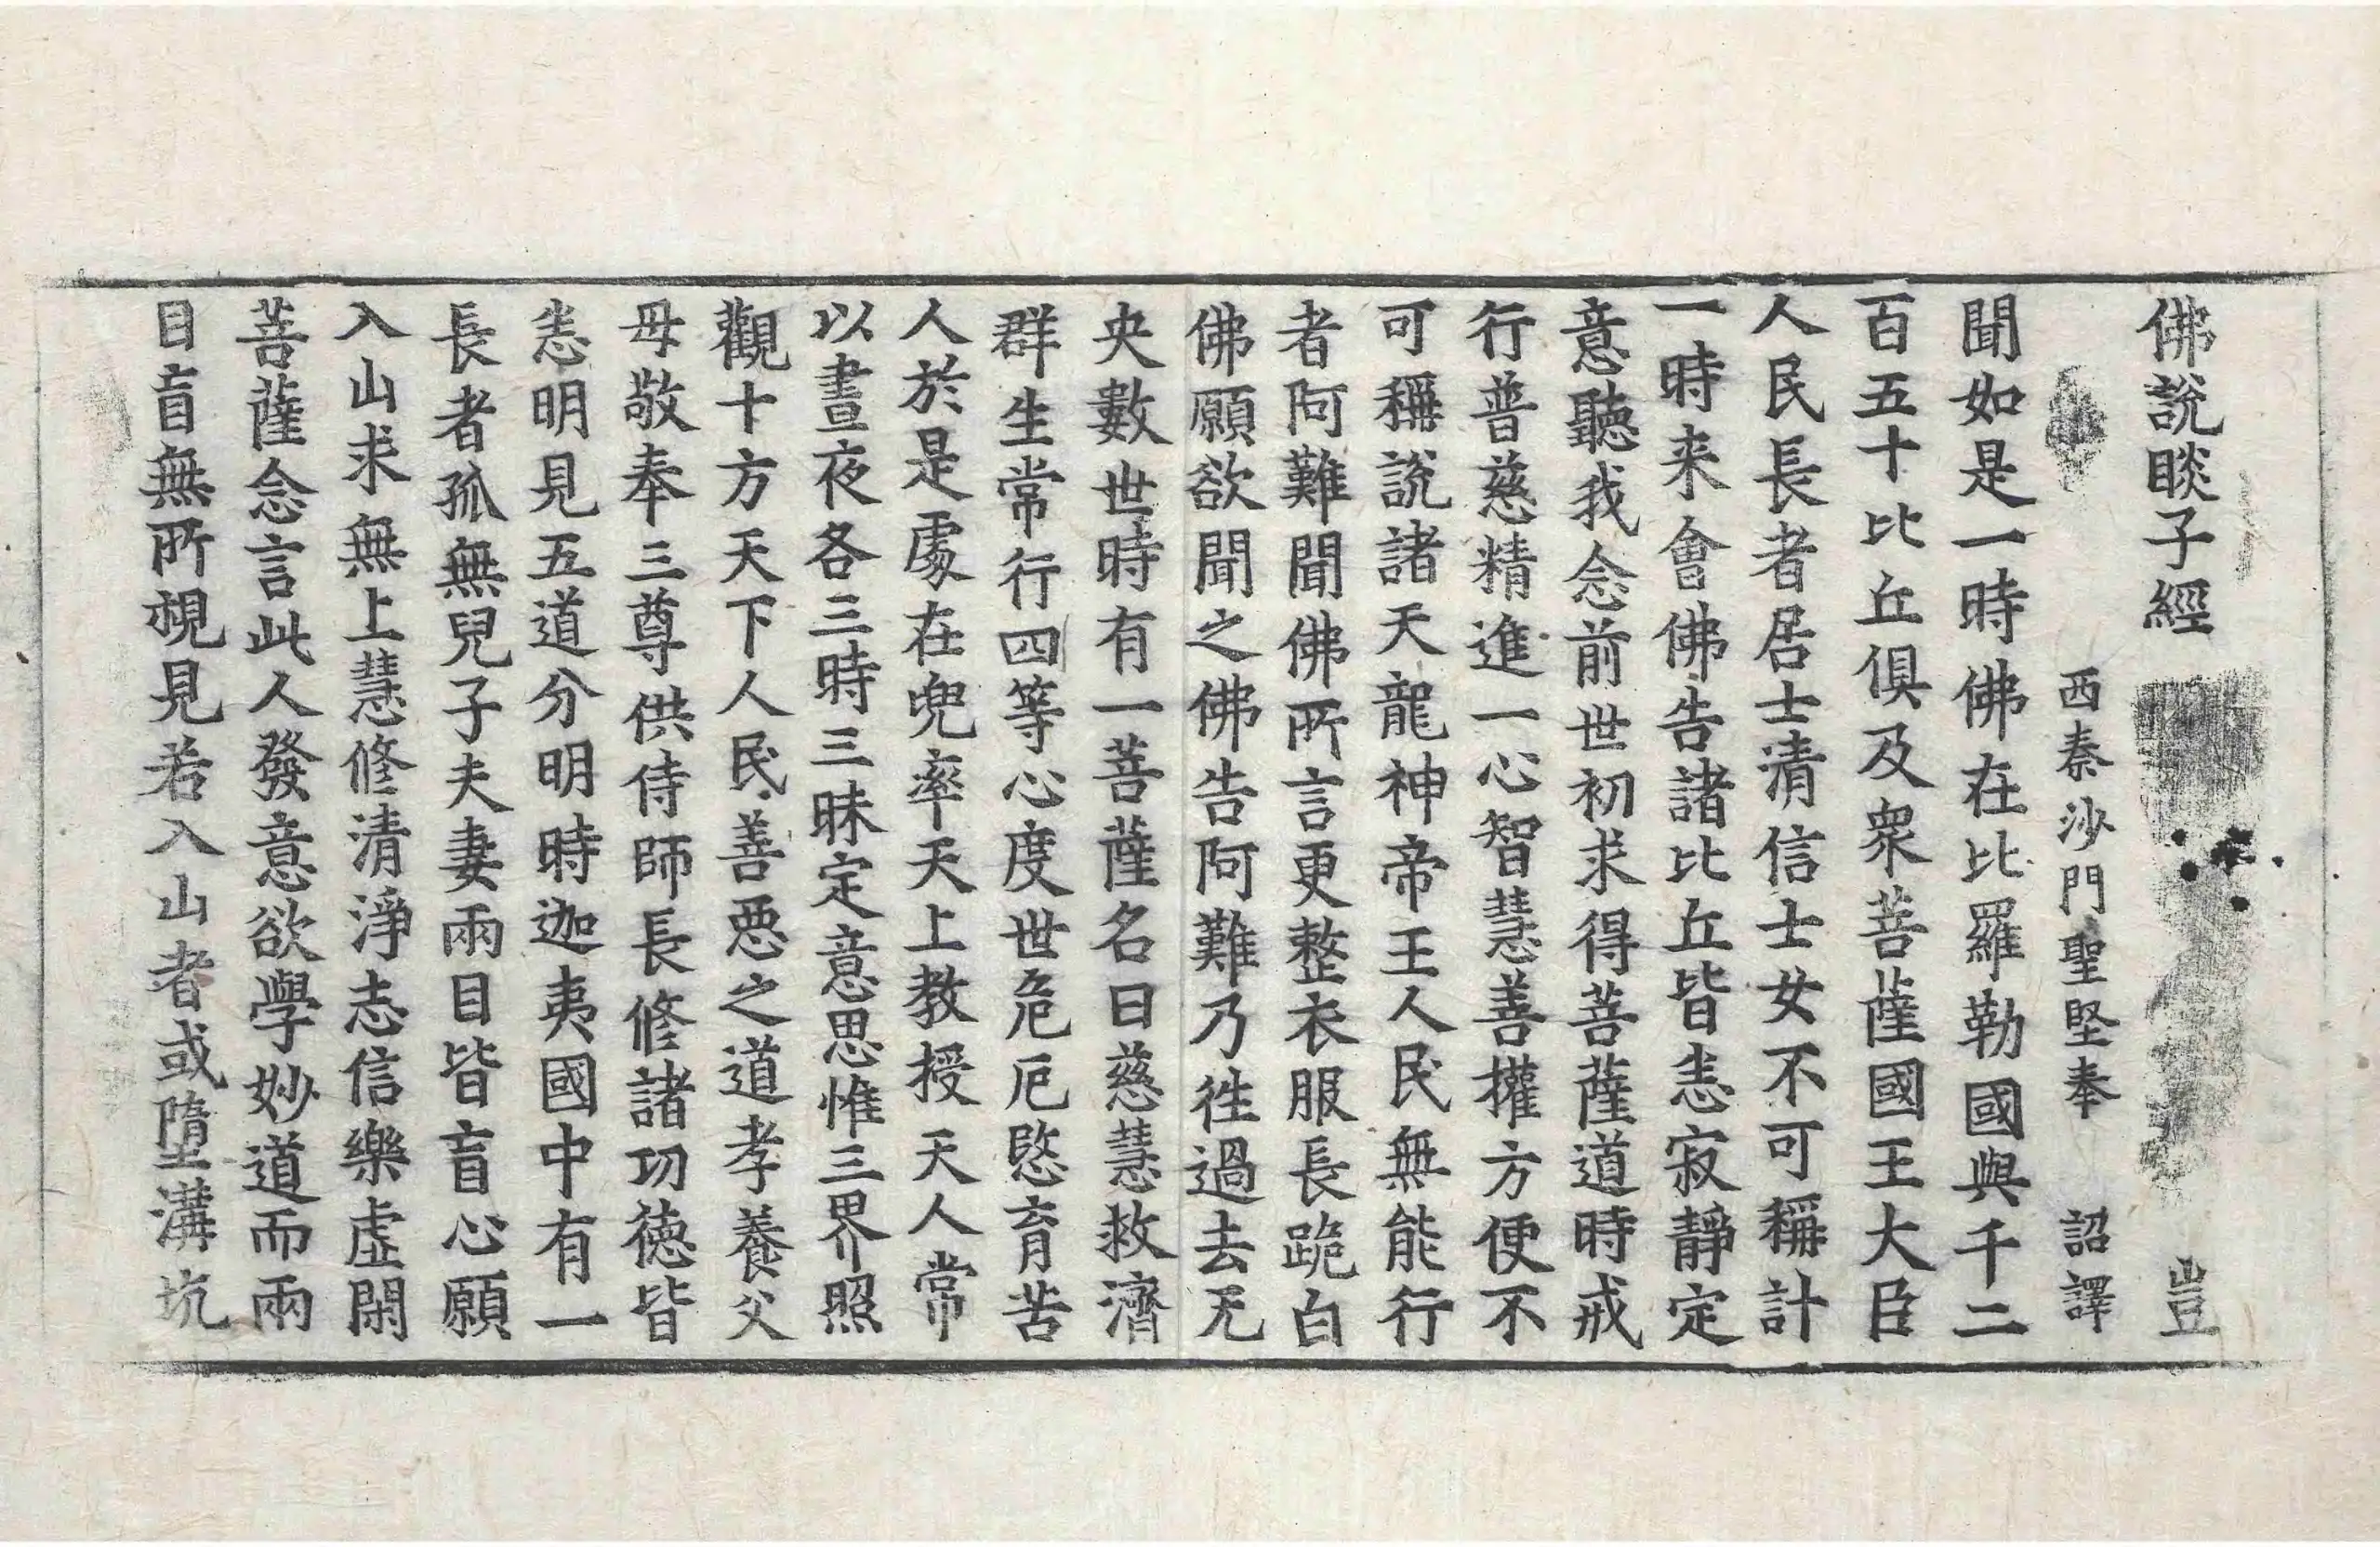 佛說睒子經 豈
西秦沙門聖堅奉 詔譯
聞如是一時佛在比羅勒國與千二
百五十比丘俱及衆菩薩國王大臣
人民長者居士清信士女不可稱計
一時来會佛告諸比丘皆恚寂靜定
意聽我念前世初求得菩薩道時戒
行普慈精進一心智慧善權方便不
可稱說諸天龍神帝王人民無能行
者阿難聞佛所言更整衣服長跪白
佛願欲聞之佛告阿難乃徃過去无
央數世時有一菩薩名曰慈慧救濟
群生常行四等心度世危厄愍育苦
人於是處在兜率天上教授天人常
以晝夜各三時三昧定意思惟三界照
觀十方天下人民善惡之道孝養父
母敬奉三尊供侍師長修諸功德皆
恚明見五道分明時迦夷國中有一
長者孤無兒子夫妻兩目皆盲心願
入山求無上慧修清淨志信樂虛閑
菩薩念言此人發意欲學妙道而兩
目盲無所視見若入山者或墮溝坑